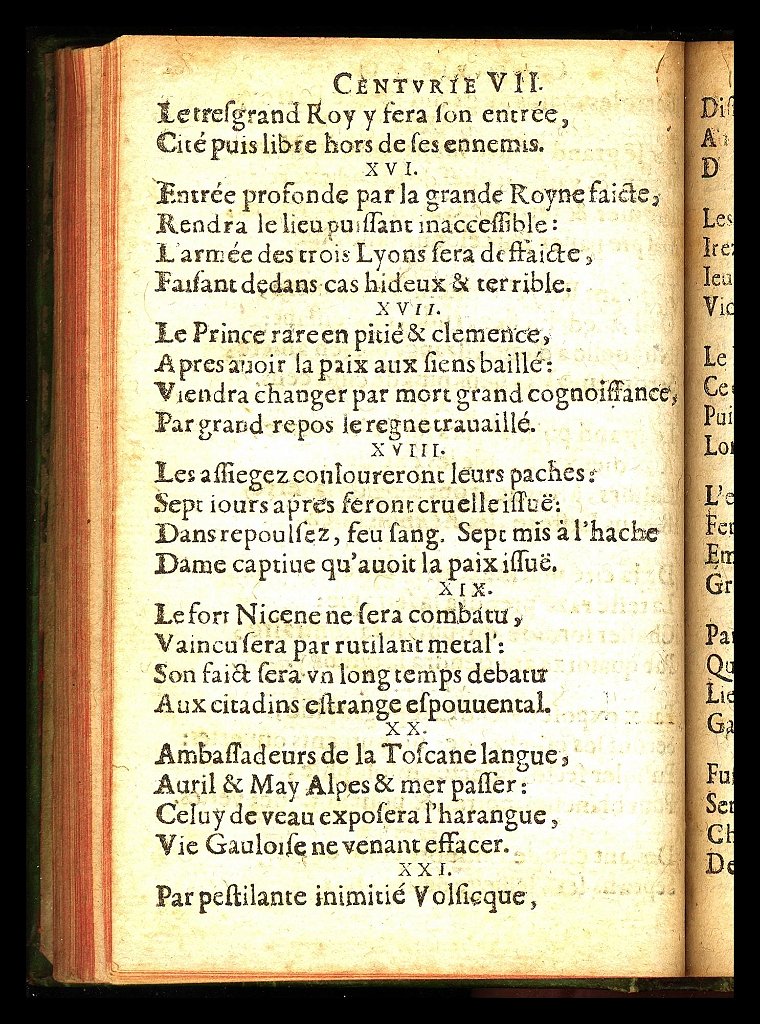 CENTVRIE VII.
Le tresgrand Roy y fera son entrée,
Cité puis libre hors de ses ennemis.
XVI.
Entrée profonde par la grande Royne faicte,
Rendra le lieu puissant inaccessible:
L'armée des trois Lyons sera deffaicte,
Faisant dedans cas hideux & terrible.
XVII.
Le Prince rare en pitié & clemence,
Apres auoir la paix aux siens baillé:
Viendra changer par mort grand cognoissance,
Par grand repos le regne trauaillé.
XVIII.
Les assiegez couloureront leurs paches:
Sept iours apres feront cruelle issuë:
Dans repoulsez, feu sang. Sept mis à l'hache
Dame captiue qu'auoit la paix issuë.
XIX.
Le fort Nicene ne sera combatu,
Vaincu sera par rutilant metal:
Son faict sera vn long temps debatu
Aux citadins estrange espouuental.
XX.
Ambassadeurs de la Toscane langue,
Auril & May Alpes & mer passer:
Celuy de veau exposera l'harangue,
Vie Gauloise ne venant effacer.
XXI.
Par pestilante inimitié Volsicque,
Les
Vic
Le
Pui
L'e
Gr
Qu
Lie
Ga
Ser
Ch
De